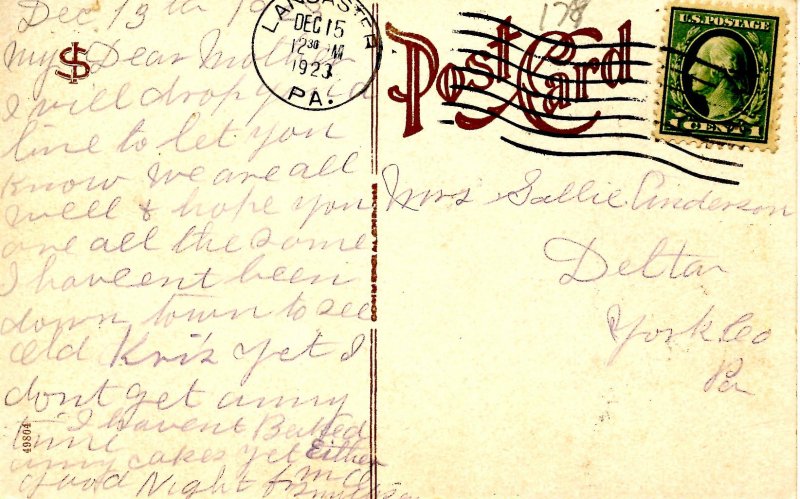 Dec 13th
My Dear Mother
I will drop you a
line to let you
know we are all
well & hope you
are all the same
I havent been
down town to see
old Kris yet I
dont get anny
time
I havent Baked
anny cakes yet Either
good Night from
49804
LANCASTER
PA.
DEC 15
12 30 M
1923
178
Post Card
U.S. POSTAGE
1 CENT 1
Mrs Sallie Anderson
Delta
York Co
Pa